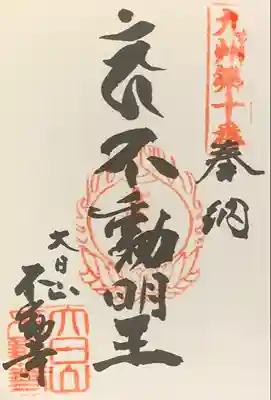 九州第十番
奉納
不動明王
大日山
不動寺
大日山